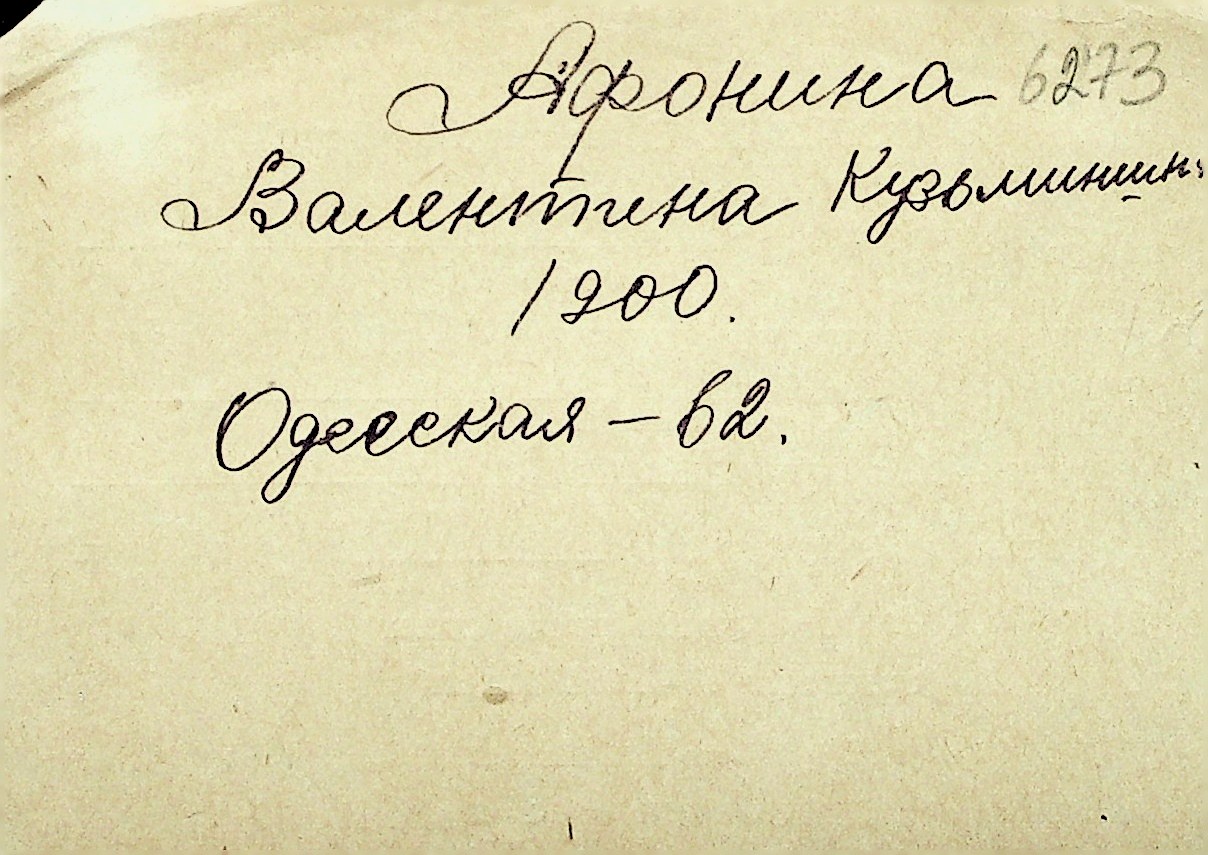 Афонина 6273
Валентина Кузьминин
1900.
Одесская - 62.